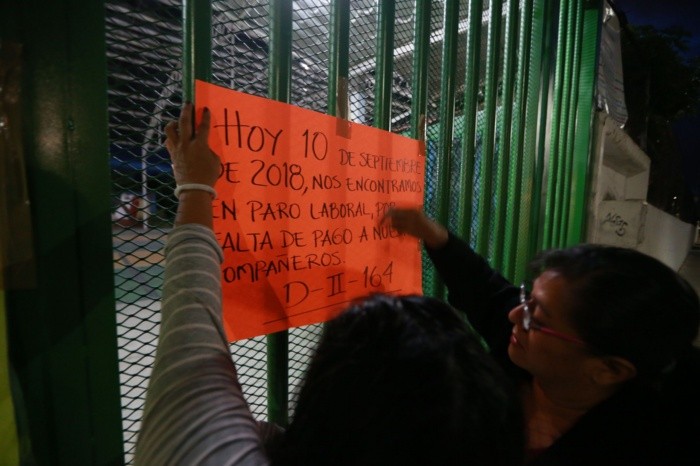 HOY 10 DE SEPTIEMBRE
DE 2018, NOS ENCONTRAMOS
EN PARO LABORAL, POR
FALTA DE PAGO A
COMPAÑEROS.
D-II-164